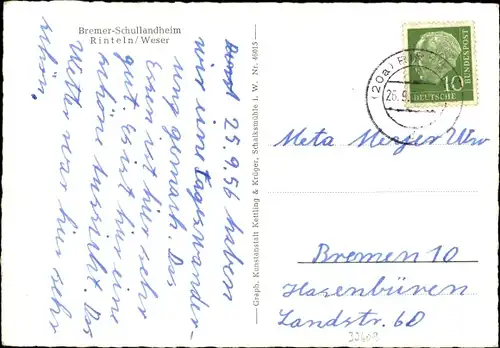 Bremer-Schullandheim
Rinteln/Weser
25.9.56 haben
wir eine Tageswander-
ung gemach. Das
Essen ist hier sehr
gut. Es ist hier eine
schöne Aussicht Das
Wetter war hier sehr
schön.
Graph. Kunstanstalt Kettling & Krüger, Schalksmühle i. W. Nr. 46015
10
DEUTSCHE
BUNDESPOST
(20a) RIN
26.9.
Meta Meyer Ww
Bremen 10
Hasenbüren
Landstr. 60